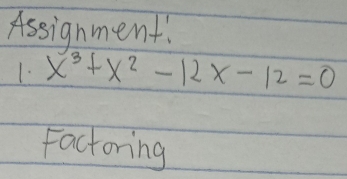 Assignment:
1. x³ + x² - 12x - 12 = 0
Factoring